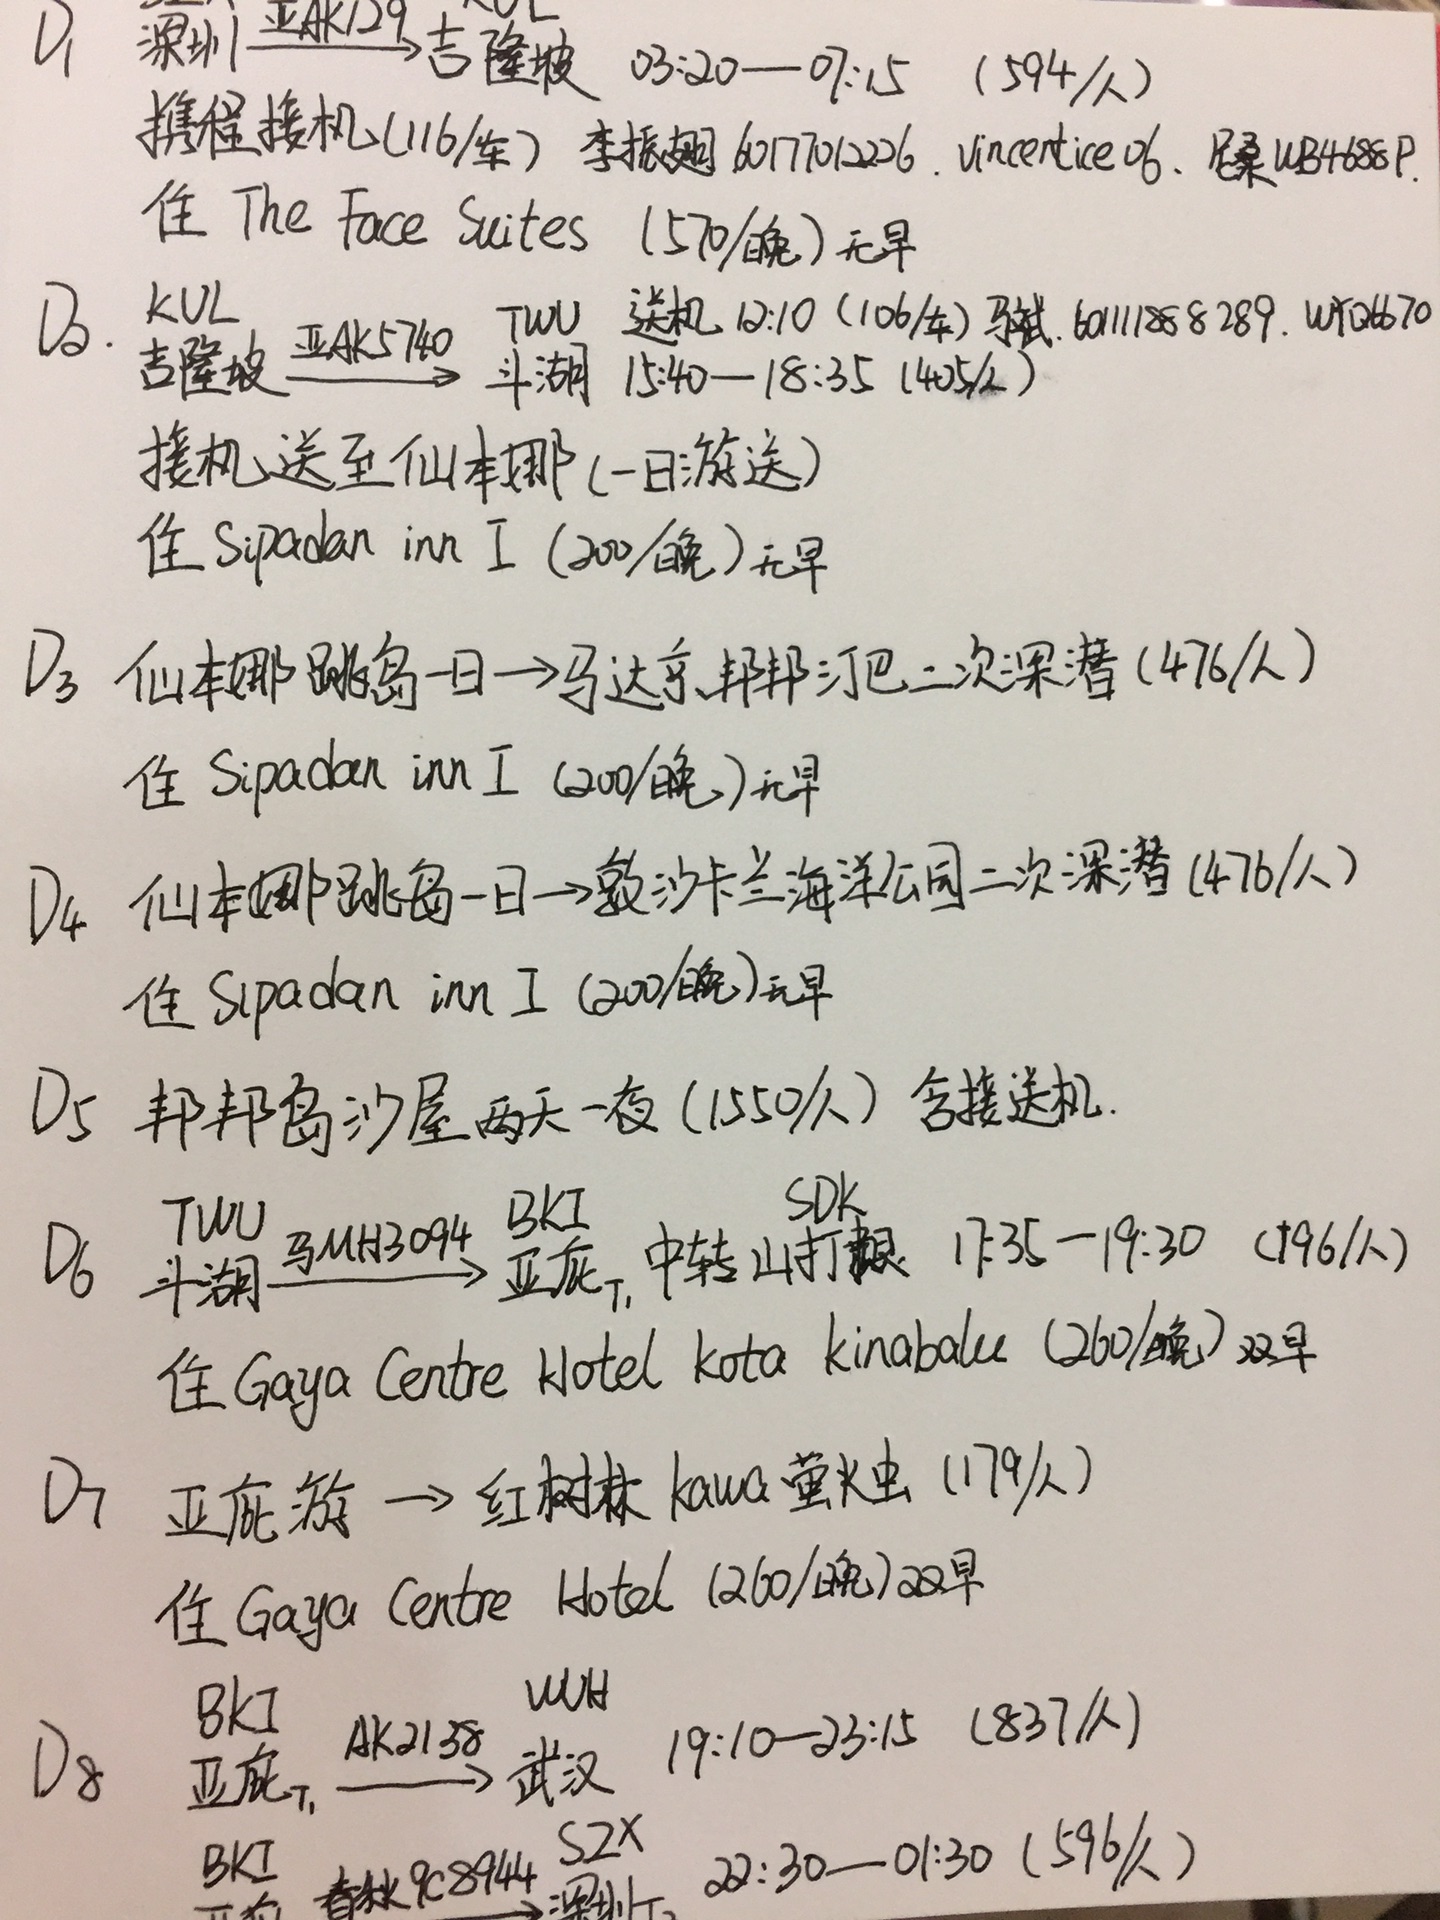 D1 深圳 亚AK129 → 吉隆坡 03:20—07:15 (594/人)
携程接机(116/车) 李振翅 60177012226. vincentice06、尼桑WB4688P.
住 The Face Suites (570/晚) 无早
KUL TWU 送机 12:10 (106/车) 601111288289.
D2. 吉隆坡 亚AK5740 → 斗湖 15:40—18:35 (405/人)
接机送至仙本娜(一日游送)
住 Sipadan inn I (200/晚) 无早
D3 仙本娜跳岛一日→马达京、邦邦汀巴二次深潜(476/人)
住 Sipadan inn I (200/晚) 无早
D4 仙本娜跳岛一日→敦沙卡兰海洋公园二次深潜(476/人)
住 Sipadan inn I (200/晚) 无早
D5 邦邦岛沙屋两天一夜(1550/人) 含接送机.
TWU BKI SDK
D6 斗湖 马MH3094 → 亚庇T1 中转山打根 17:35—19:30 (196/人)
住 Gaya Centre Hotel kota kinabalu (260/晚) 双早
D7 亚庇游 → 红树林 kawa 萤火虫 (179/人)
住 Gaya Centre Hotel (260/晚) 双早
BKI WUH
D8 亚庇T1 AK2138 → 武汉 19:10—23:15 (837/人)
BKI SZX
亚庇 春秋9C8944 → 深圳 22:30—01:30 (596/人)